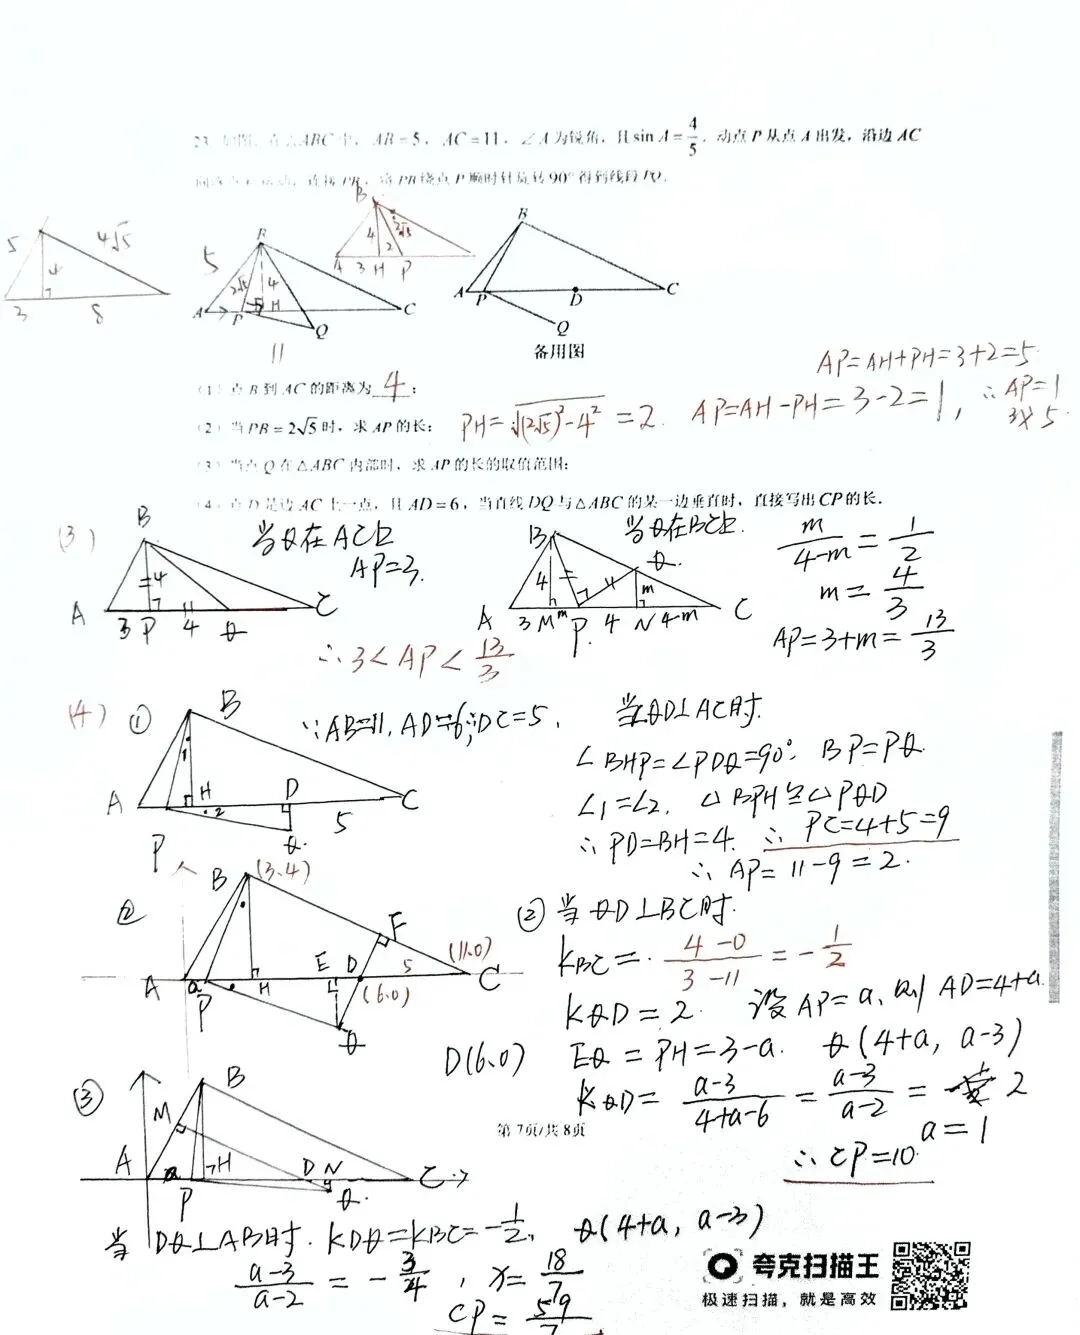 23. 如图，在△ABC中，AB=5，AC=11，∠A为锐角，且sin A=4/5．动点P从点A出发，沿边AC
连接PB，将PB绕点P顺时针旋转90°得到线段PQ．
B
5 4√5 4 3 8
5 B 2√5 4 H A P C Q 11
4 2√5 2 A 3 H P
B A P D C Q
备用图
AP=AH+PH=3+2=5
(1) 点B到AC的距离为 4 ；
(2) 当PB=2√5时，求AP的长； PH=√(2√5)²-4² =2. AP=AH-PH=3-2=1, ∴AP=1
3或5
(3) 当点Q在△ABC内部时，求AP的长的取值范围；
(4) 点D是边AC上一点，且AD=6，当直线DQ与△ABC的某一边垂直时，直接写出CP的长．
(3) B 4 A 3 P 4 Q C
当Q在AC上
AP=3.
B 4 A 3 M m P 4 N 4-m C Q m
当Q在BC上
m/4-m = 1/2
m=4/3
AP=3+m=13/3
∴3<AP<13/3
(4) ① B A P H 1 2 D Q 5 C
∵AB=11, AD=6, ∴DC=5, 当QD⊥AC时.
∠BHP=∠PDQ=90°, BP=PQ
∠1=∠2, △BPH≌△PQD
∴PD=BH=4. ∴PC=4+5=9
∴AP=11-9=2.
② B (3,4) A a P H E D 5 (6,0) F (11,0) C Q
② 当QD⊥BC时.
KBC= 4-0/3-11 = -1/2
KQD=2. 设AP=a, 则AD=4+a
D(6,0) EQ=PH=3-a. Q(4+a, a-3)
KQD= a-3/4+a-6 = a-3/a-2 = 2
a=1
∴CP=10
③ B M A a P H D N Q C
第 7页/共 8页
当DQ⊥AB时. KDQ=KBC=-1/2, Q(4+a, a-3)
a-3/a-2 = -3/4, x=18/7
CP=59/7
夸克扫描王
极速扫描，就是高效